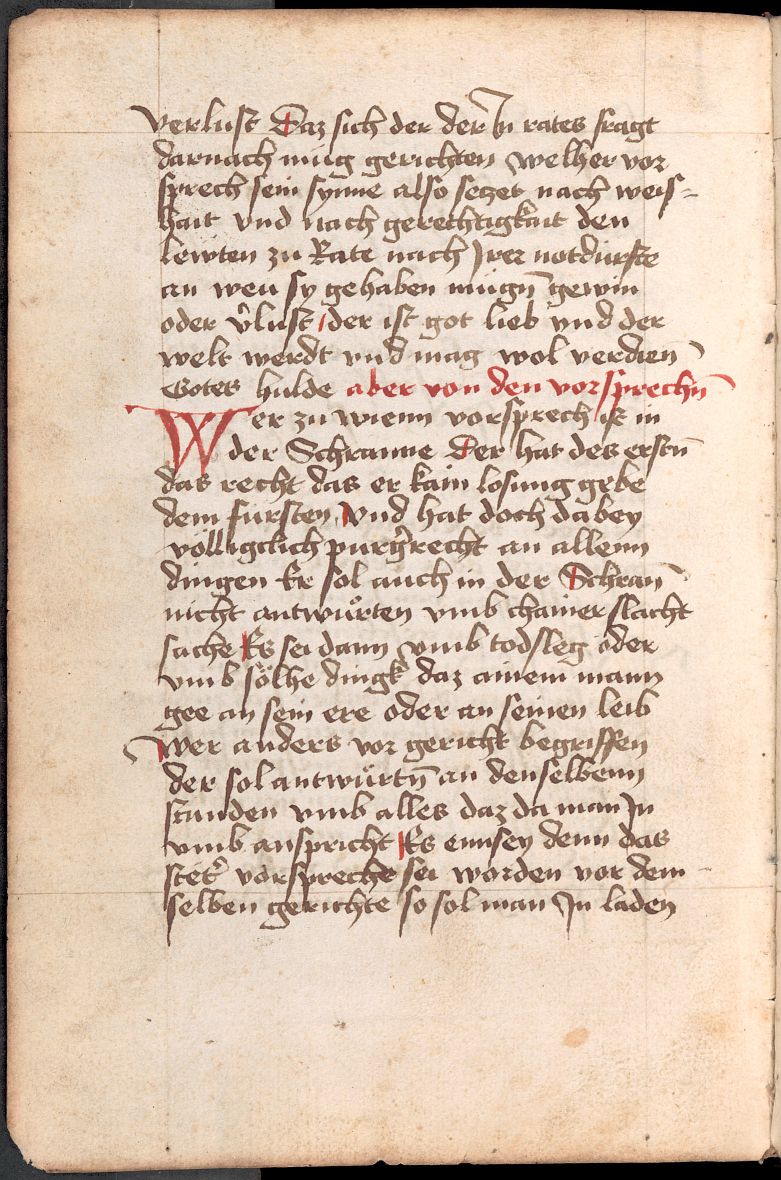 verlust Daz sich der der In rates fragt
darnach müg gerichten welher vor
sprech sein synne also seczet nach weis-
hait vnd nach gerechtigkait den
lewten zu Rate nach Jrer notdürfte
an wen sy gehaben mügn̄ gewin
oder v̾lust der ist got lieb vnd der
welt werdt vnd mag wol verdien̄
Gotes hulde aber von den vorsprechn̄
Wer zu wienn vorsprech ist in
der Schranne Der hat des erstn̄
das recht das er kain losung gebe
dem fürsten vnd hat doch dabey
völligclich purg̾recht an allenn
dingen Er sol auch in der Schran̄
nicht antwürten vmb chainer slacht
sache Es sei dann vmb todsleg oder
vmb sölhe dingk daz ainem mann
gee an sein ere oder an seinen leib
wer anders vor gericht begriffen
der sol antwürtn̄ an denselbenn
stunden vmb alles daz da man In
vmb anspricht Es ennsey denn das
stet̾ vorsprech sei worden vor dem
selben gerichte so sol man In laden